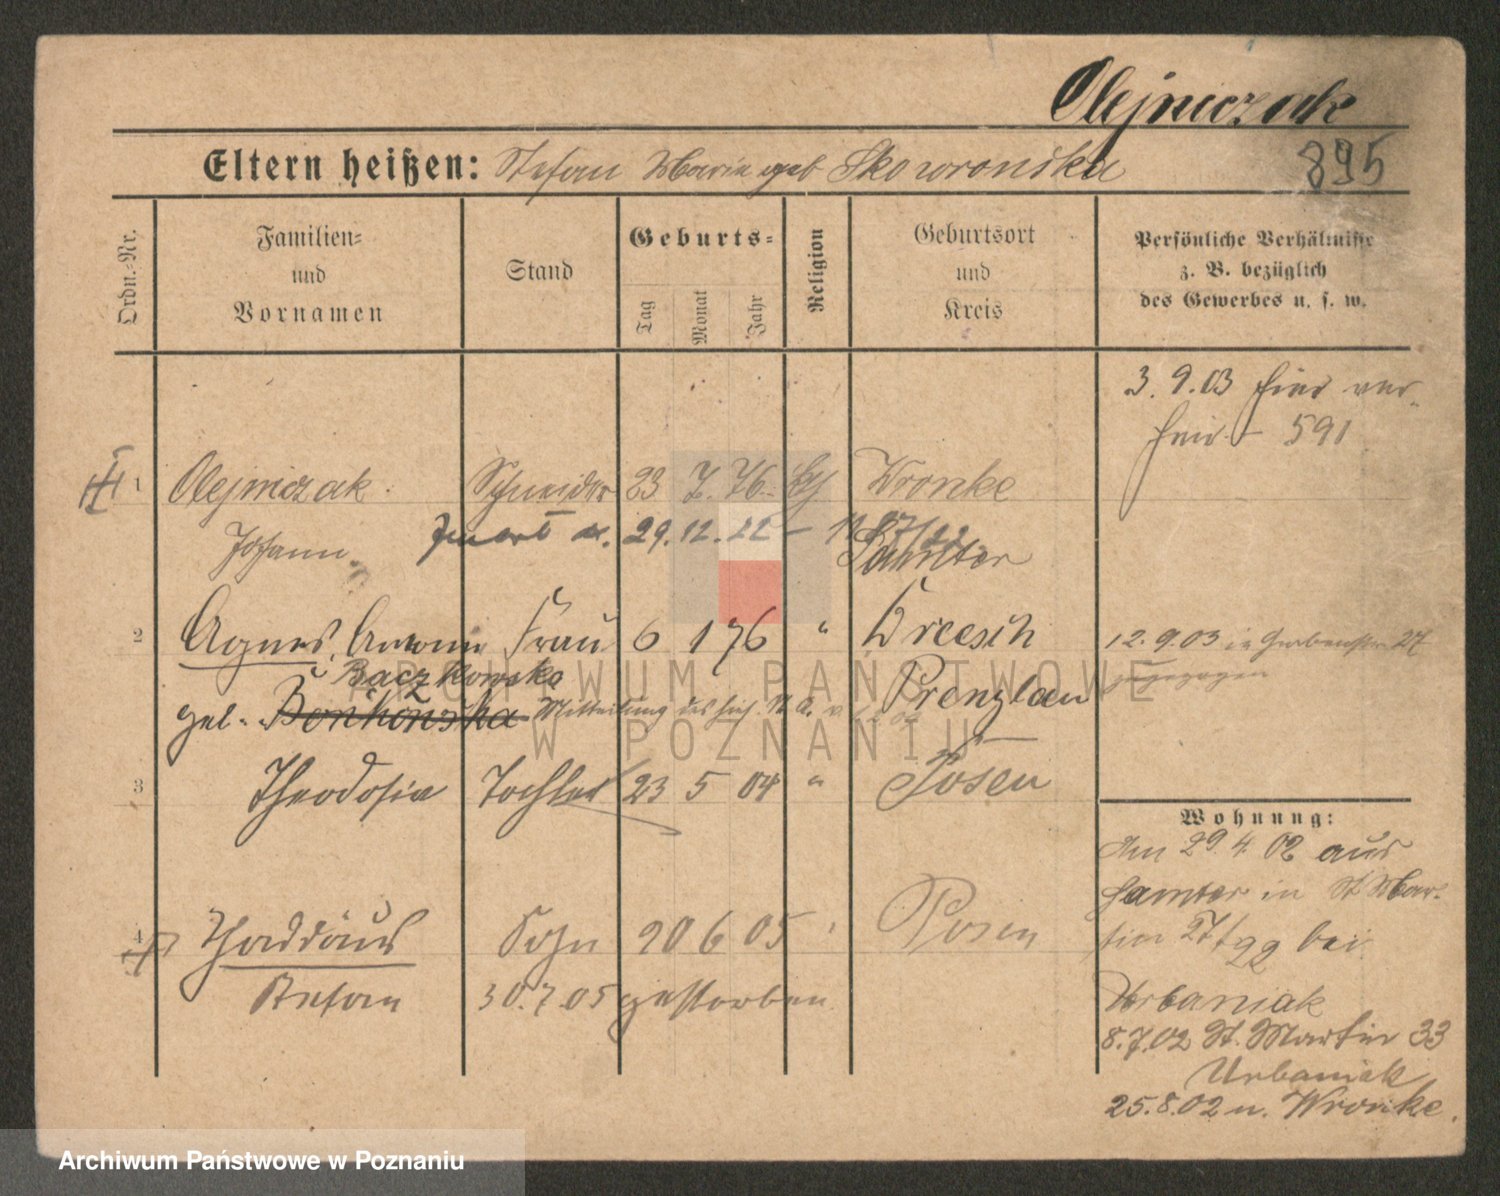 Olejniczak
Eltern heißen: Stefan Marie geb Skowronska
895
Ordn.-Nr.
Familien-
und
Vornamen
Stand
Geburts-
Tag
Monat
Jahr
Religion
Geburtsort
und
Kreis
Persönliche Verhältnisse
z. B. bezüglich
des Gewerbes u. s. w.
3. 9. 03 hier ver-
heir. 591
1 Olejniczak Schneider 23 7. 76. Wronke
Johann 29. 12. 22 Samter
2 Agnes, Frau 6 1 76 " Dreesch
12. 9. 03 in 27
zugezogen
Baczkowska
geb. Bonkowska Mitteilung des Prenzlau
3 Theodosia Tochter 23 5 04 " Posen
Wohnung:
Am 29. 4. 02 aus
Samter in St Mar-
tin 27/ bei
4 Thaddäus Sohn 20 6 05 Posen
Stefan 30. 7. 05 gestorben
Urbaniak
8. 7. 02 St. Martin 33
Urbaniak
25. 8. 02 n. Wronke.
ARCHIWUM PAŃSTWOWE
W POZNANIU
Archiwum Państwowe w Poznaniu